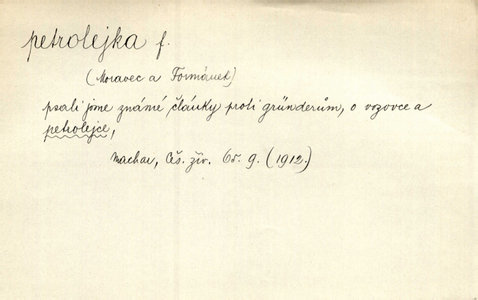 petrolejka f.
(Moravec a Formánek)
psali jsme známé články proti gründerům, o vozovce a
petrolejce,
Machar, Čes. živ. 65. 9. (1912.)